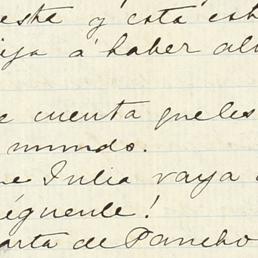 este y esta est
ija á haber al
e cuenta que les
mundo.
ue Julia vaya
éguente!
arta de Pancho